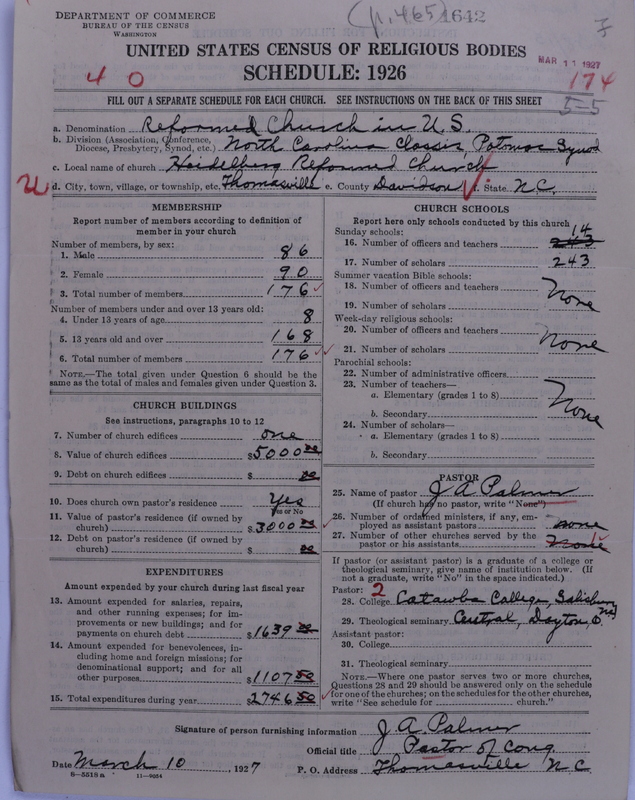 DEPARTMENT OF COMMERCE
BUREAU OF THE CENSUS
WASHINGTON
(p. 465) 1642
7
UNITED STATES CENSUS OF RELIGIOUS BODIES
MAR 11 1927
SCHEDULE: 1926
4 0
174
FILL OUT A SEPARATE SCHEDULE FOR EACH CHURCH. SEE INSTRUCTIONS ON THE BACK OF THIS SHEET
5-5
a. Denomination Reformed Church in U.S.
b. Division (Association, Conference, Diocese, Presbytery, Synod, etc.) North Carolina Classis, Potomac Synod
c. Local name of church Heidelberg Reformed Church
d. City, town, village, or township, etc. Thomasville e. County Davidson f. State N.C.
MEMBERSHIP
Report number of members according to definition of
member in your church
Number of members, by sex:
1. Male 86
2. Female 90
3. Total number of members 176
Number of members under and over 13 years old:
4. Under 13 years of age 8
5. 13 years old and over 168
6. Total number of members 176
NOTE.—The total given under Question 6 should be
same as the total of males and females given under Question 3.
CHURCH BUILDINGS
See instructions, paragraphs 10 to 12
7. Number of church edifices one
8. Value of church edifices $5000 00
9. Debt on church edifices $ 00
10. Does church own pastor's residence? Yes
Yes or No
11. Value of pastor's residence (if owned by
church) $3000 00
12. Debt on pastor's residence (if owned by
church) $ 00
EXPENDITURES
Amount expended by your church during last fiscal year
13. Amount expended for salaries, repairs,
and other running expenses; for im-
provements or new buildings; and for
payments on church debt $1639 00
14. Amount expended for benevolences, in-
cluding home and foreign missions; for
denominational support; and for all
other purposes $1107 50
15. Total expenditures during year $2746 50
CHURCH SCHOOLS
Report here only schools conducted by this church
Sunday schools: 14
16. Number of officers and teachers 243
17. Number of scholars 243
Summer vacation Bible schools:
18. Number of officers and teachers
19. Number of scholars None
Week-day religious schools:
20. Number of officers and teachers
21. Number of scholars None
Parochial schools:
22. Number of administrative officers
23. Number of teachers—
a. Elementary (grades 1 to 8)
b. Secondary None
24. Number of scholars—
a. Elementary (grades 1 to 8)
b. Secondary
PASTOR
25. Name of pastor J A Palmer
(If church has no pastor, write "None")
26. Number of ordained ministers, if any, em-
ployed as assistant pastors none
27. Number of other churches served by the
pastor or his assistants None
If pastor (or assistant pastor) is a graduate of a college or
theological seminary, give name of institution below. (If
not a graduate, write "No" in the space indicated.)
Pastor: 2
28. College Catawba College, Salisbury
29. Theological seminary Central, Dayton, O.
Assistant pastor:
30. College
31. Theological seminary
NOTE.—Where one pastor serves two or more churches,
Questions 28 and 29 should be answered only on the schedule
for one of the churches; on the schedules for the other churches,
write "See schedule for church."
Signature of person furnishing information J A Palmer
Official title Pastor of Cong
Date March 10, 1927
P. O. Address Thomasville N C
8—5518 a 11—9064